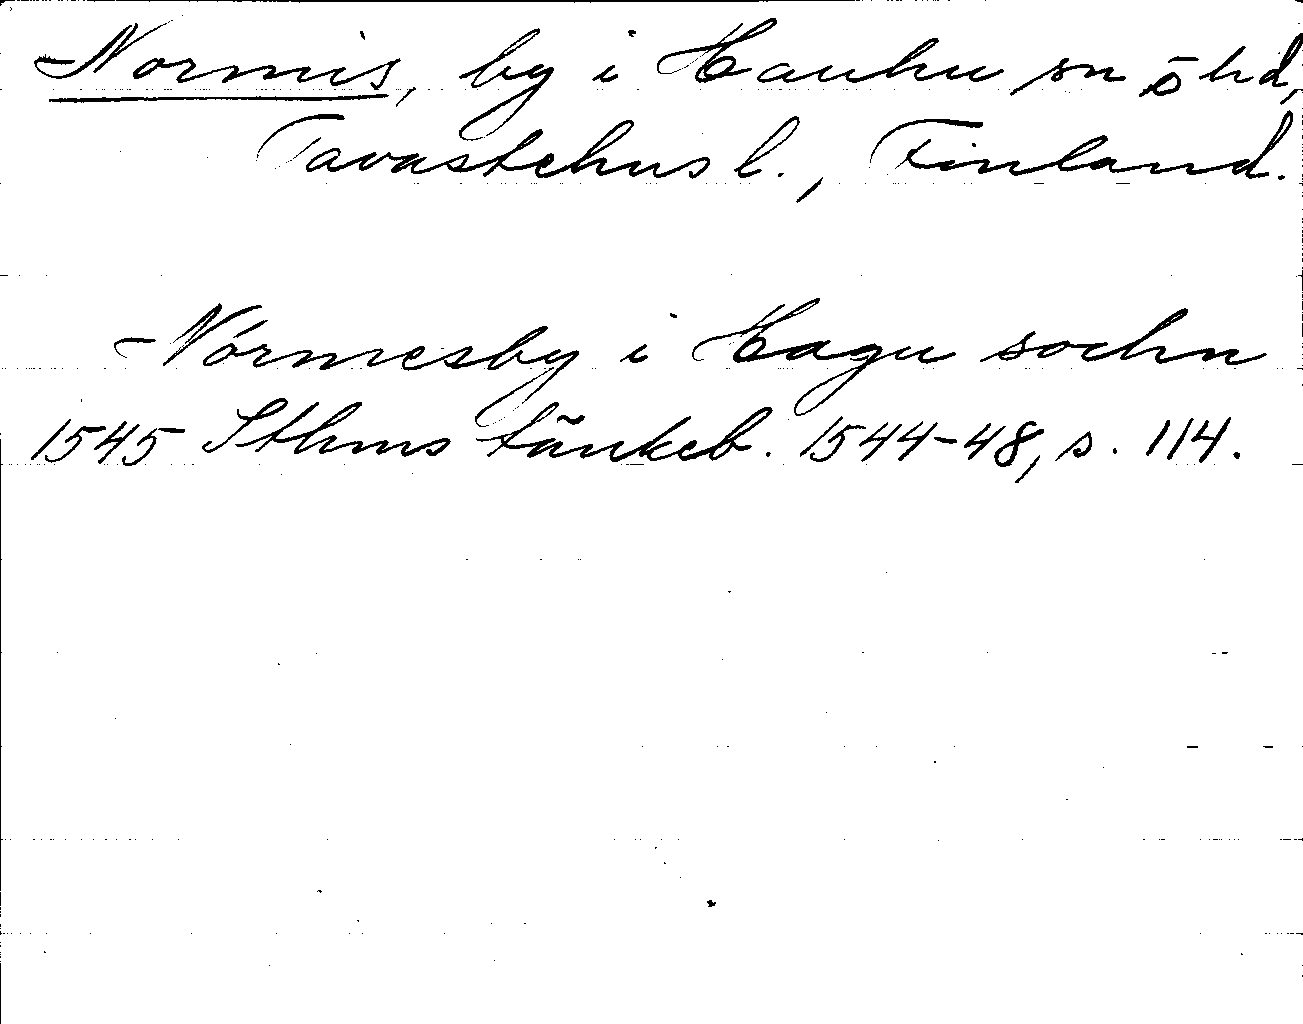 Normis, by i Hauhu sn o hd,
Tavastehus l., Finland.
Normesby i Hagu sochn
1545 Sthms tänkeb. 1544-48, s. 114.